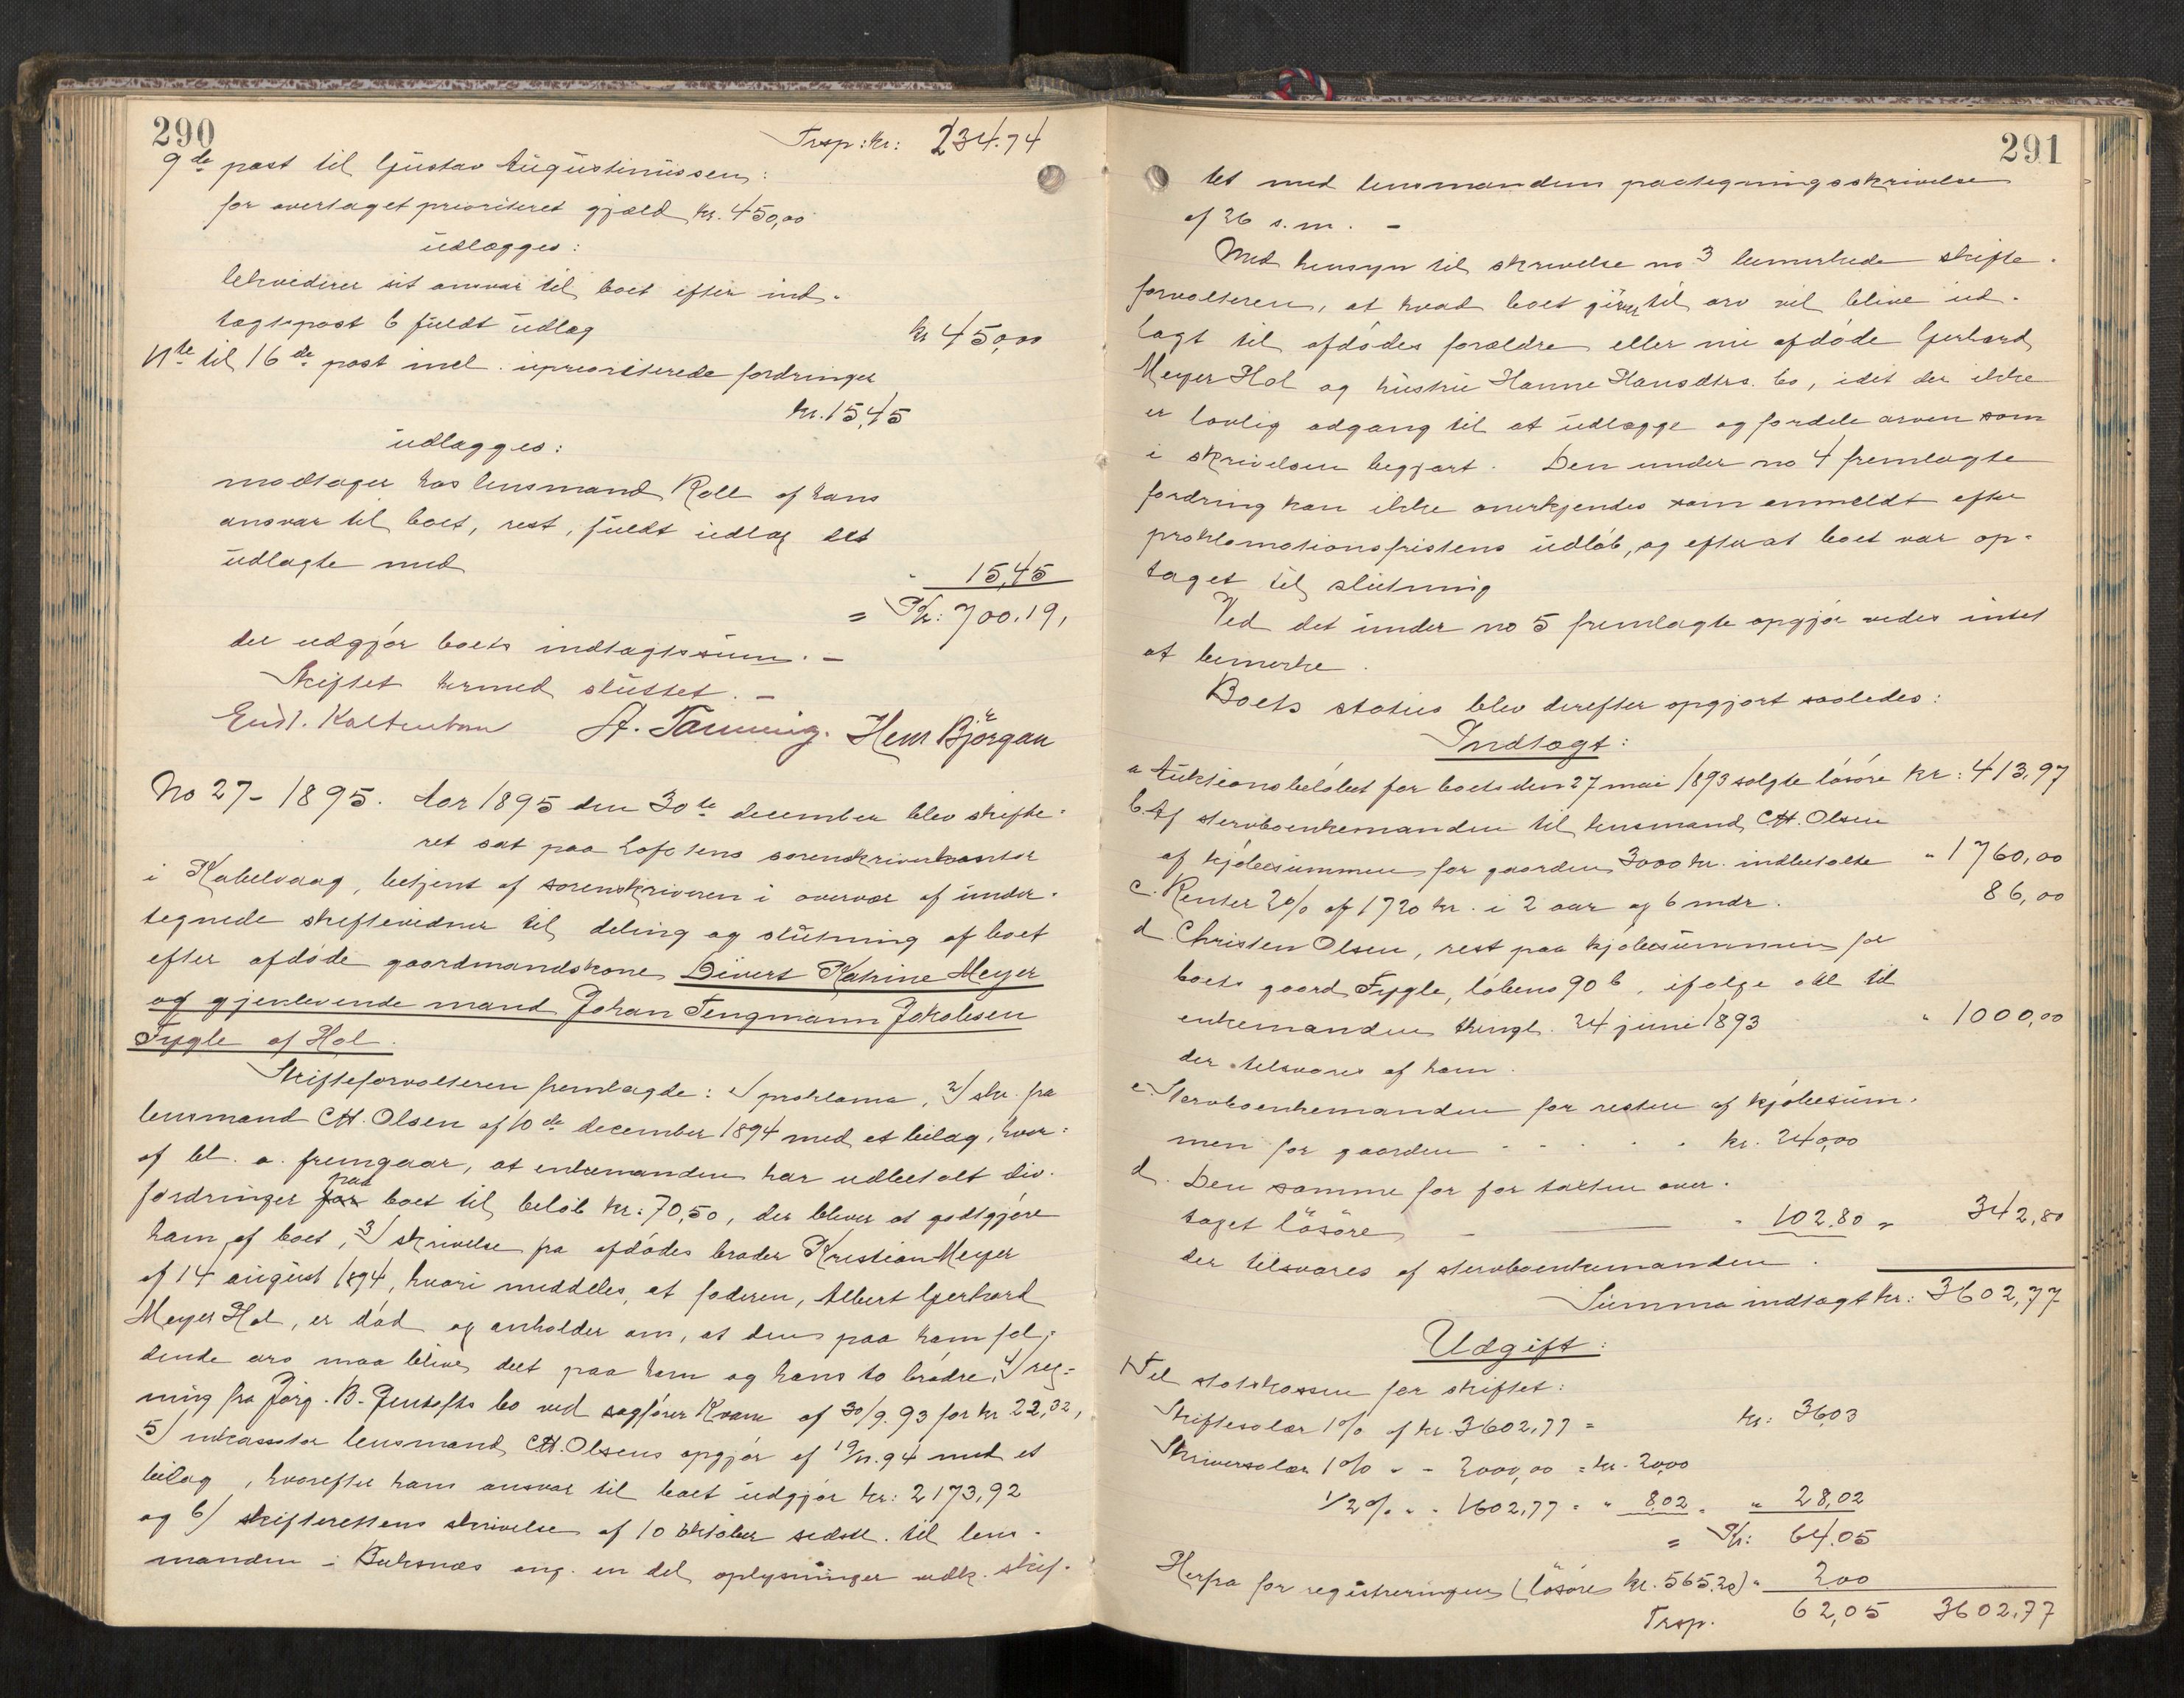 290
Trsp: kr: 234.74
9de post til Gustav Augustinussen:
for overtaget prioriteret gjæld kr. 450,00
udlægges:
lekvidirer sit ansvar til boet efter ind-
tægtspost 6 fuldt udlæg kr 450,00
11te til 16de post incl. uprioriterede fordringer
kr. 15,45
udlægges:
modtager hos lensmand Roll af hans
ansvar til boet, rest, fuldt udlæg det
udlagte med " 15,45
= Kr: 700.19,
der udgjør boets indtægtssum. -
Skiftet hermed sluttet. -
A. Tanning. Hem Bjørgan
No 27 - 1895. Aar 1895 den 30te december blev skifte-
ret sat paa Lofotens sorenskriverkontor
i Kabelvaag, betjent af sorenskriveren i overvær af under-
tegnede skiftevidner til deling og slutning af boet
efter afdøde gaardmandskone Divert Katrine Meyer
og gjenlevende mand Johan Tengmann Jakobsen
Fygle af Hol.
Skifteforvalteren fremlagte: 1/ proklama, 2/ skr. fra
lensmand CH. Olsen af 10de december 1894 med et bilag, hvor-
af bl. a. fremgaar, at enkemanden har udbetalt div.
fordringer for paa boet til beløb kr: 70,50, der bliver at godtgjøre
ham af boet, 3/ skrivelse fra afdødes broder Kristian Meyer
af 14 august 1894, hvori meddeles, at faderen, Albert Gerhard
Meyer Hol, er død og anholder om, at den paa ham fal-
dende arv maa blive delt paa ham og hans to brødre, 4/ reg-
ning fra Jørg. B. Jentofts bo ved sagfører Kvam af 30/9. 93 for kr 22,32,
5/ inkassator lensmand CH. Olsens opgjør af 19/11. 94 med et
bilag, hvorefter hans ansvar til boet udgjør kr: 2173,92
og 6/ skifterettens skrivelse af 10 oktober sidstl. til lens-
manden i Buksnæs ang. en del oplysninger vedk. skif-
291
tet med lensmandens paategningsskrivelse
af 26 s. m. -
Med hensyn til skrivelse no 3 bemerkede skifte-
forvalteren, at hvad boet giver til arv vil blive ud-
lagt til afdødes forældre eller nu afdøde Gerhard
Meyer Hol og hustru Hanne Hansdtrs. bo, idet der ikke
er lovlig adgang til at udlægge og fordele arven som
i skrivelsen begjært. Den under no 4 fremlagte
fordring kan ikke anerkjendes som anmeldt efter
proklamationsfristens udløb, og efterat boet var op-
taget til slutning
Ved det under no 5 fremlagte opgjør vedes intet
at bemerke.
Boets status blev derefter opgjort saaledes:
Indtægt:
a Auktionsbeløbet for boets den 27 mai 1893 solgte løsøre kr: 413,97
b. Af stervboenkemanden til lensmand CH. Olsen
af kjøbesummen for gaarden 3000 kr. indbetalte " 1760,00
c. Renter 2% af 1720 kr. i 2 aar og 6 mdr. 86,00
d. Christen Olsen, rest paa kjøbesummen for
boets gaard Fygle, løbeno 90 b, ifølge obl til
enkemanden thingl. 24 juni 1893 " 1000,00
der tilsvares af ham.
e. Stervboenkemanden for resten af kjøbesum-
men for gaarden - - - - kr. 240,00
d. Den samme for for taxten over-
taget løsøre - " 102.80 = 342,80
der tilsvares af stervboenkemanden.
Summa indtægt kr: 3602,77
Udgift:
1 Til statskassen for skiftet:
Skiftesalær 1% af kr. 3602,77 = kr: 36,03
Skriversalær 1% " - 2000,00 = kr. 20,00
1/2% " - 1602,77 = " 8,02 = " 28,02
= Kr: 64.05
Herfra for registreringen (løsøre kr. 565.20) " 2,00
Trsp. 62,05 3602,77